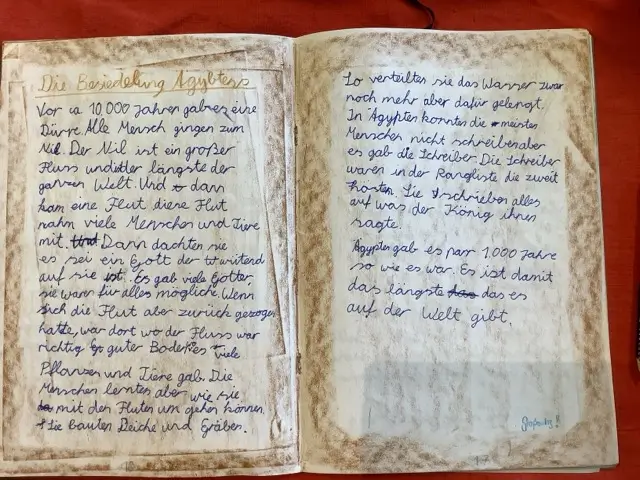 Die Besiedelung Ägybtess
Vor ca 10,000 Jahren gab es eine
Dürre. Alle Mensch gingen zum
Nil. Der Nil ist ein großer
Fluss und der längste der
ganzen Welt. Und dann
kam eine Flut diene Flut
nahm viele Menschen und Tiere
mit. Dann dachten sie
es sei ein Gott der wütend
auf sie ist. Es gab viele Götter,
sie waren für alles mögliche. Wenn
sich die Flut aber zurück gezogen
hatte, war dort wo der Fluss war
richtig guter Boden es viele
Pflanzen und Tiere gab. Die
Menschen lernten aber wie sie
mit den Fluten um gehen können.
Sie bauten Deiche und Gräben.
So verteilten sie das Wasser zwar
noch mehr aber dafür gelengt.
In Ägypten konnten die meisten
Menschen nicht schreiben aber
es gab die Schreiber. Die Schreiber
waren in der Rangliste die zweit
Sie schrieben alles
auf was der König ihnen
sagte.
Ägypten gab es parr 1,000 Jahre
so wie es war. Es ist damit
das längste das es
auf der Welt gibt.